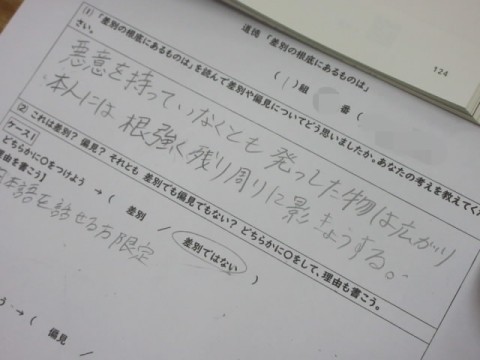 道徳 「差別の根底にあるものは」
124
(1)組
番(
【1】「差別の根底にあるものは」を読んで差別や偏見についてどう思いましたか。あなたの考えを教えてくだ
さい。
悪意を持っていなくとも発っした物は広がり
本人には根強く残り周りに影きょうする。
【2】これは差別？偏見？それとも 差別でも偏見でもない？どちらかに○をして、理由も書こう。
ケース1
どちらかに○をつけよう → ( 差別 / 差別ではない )
理由を書こう】
日本語を話せる方限定
→ ( 偏見 /